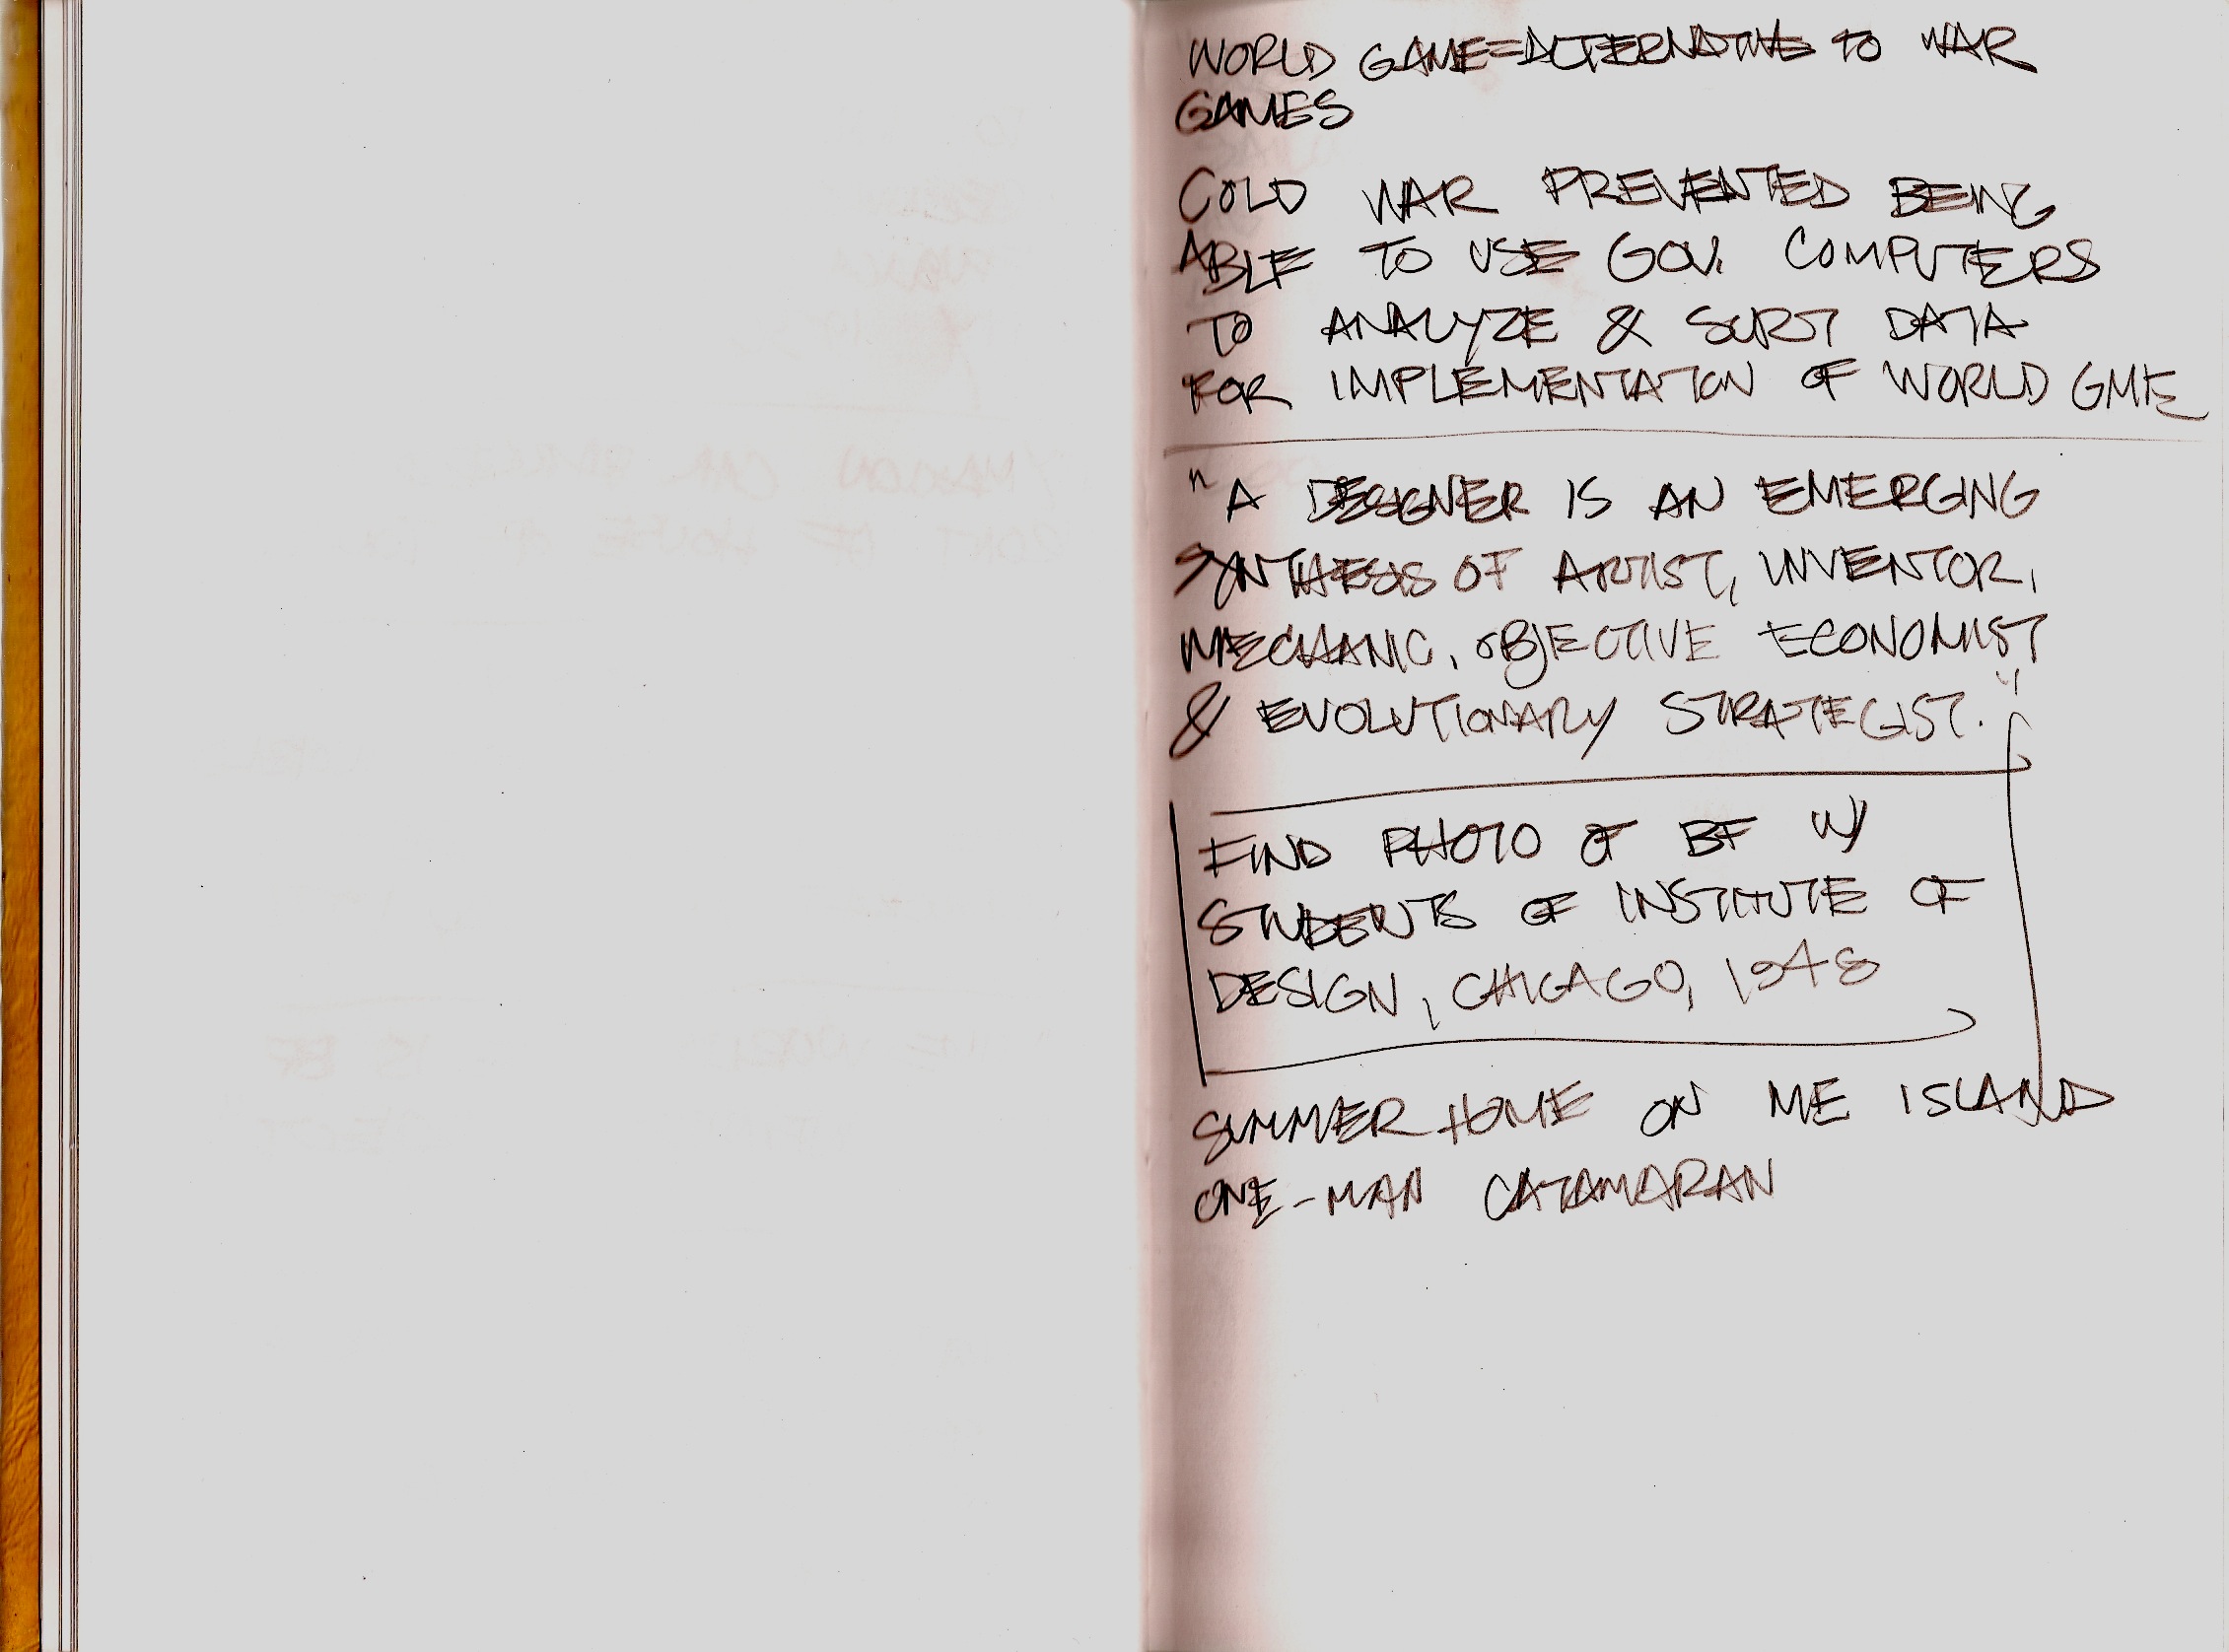 WORLD GAME=ALTERNATIVE TO WAR
GAMES
COLD WAR PREVENTED BEING
ABLE TO USE GOV. COMPUTERS
TO ANALYZE & SORT DATA
FOR IMPLEMENTATION OF WORLD GME
"A DESIGNER IS AN EMERGING
SYNTHESIS OF ARTIST, INVENTOR,
MECHANIC, OBJECTIVE ECONOMIST
& EVOLUTIONARY STRATEGIST."
FIND PHOTO OF BF W/
STUDENTS OF INSTITUTE OF
DESIGN, CHICAGO, 1948
SUMMER HOME ON ME ISLAND
ONE-MAN CATAMARAN